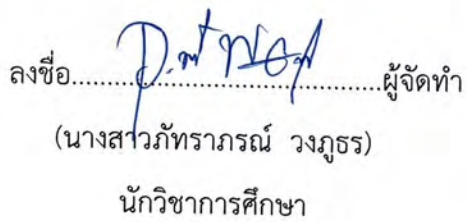 ลงชื่อ....................................ผู้จัดทำ
(นางสาวภัทราภรณ์ วงภูธร)
นักวิชาการศึกษา